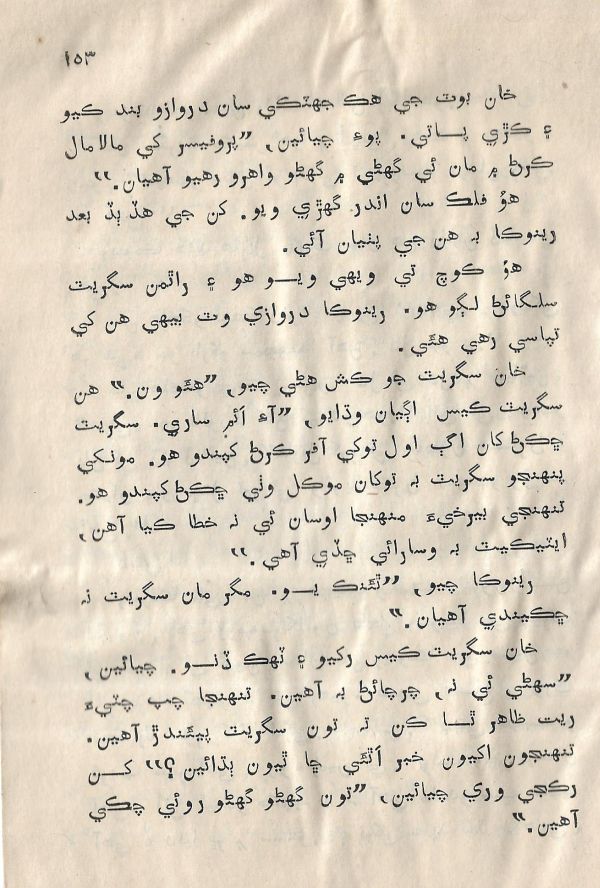 ۱۵۳
خان بوٽ جي هڪ جهٽڪي سان دروازو بند ڪيو
۽ ڪڙي پــاتي. پوءِ چيائين, ”پروفيسر کي مالامال
ڪرڻ ۾ مان ئي گهڻي ۾ گهڻو واهرو رهيو آهيان.“
هوُ فلڪ سان اندر گهڙي ويو. کن جي هڏ ٻڏ بعد
رينوڪا بہ هن جي پٺيان آئي.
هوُ ڪوچ تي ويهي ويــو هو ۽ راٿمن سگريٽ
سلگائڻ لڳو هو. رينوڪا دروازي وٽ بيهي هن کي
تپاسي رهي هئي.
خان سگريٽ جو ڪش هڻي چيو, ”هئو ون.“ هن
سگريٽ ڪيس اڳيان وڌايو, ”آءِ ائم ساري. سگريٽ
ڇڪڻ کان اڳ اول توکي آفر ڪرڻ کپندو هو. مونکي
پنهنجو سگريٽ بہ توکان موڪل وٺي ڇڪڻ کپندو هو.
تنهنجي بيرخيءَ منهنجا اوسان ئي نہ خطا ڪيا آهن,
ايٽيڪيٽ بہ وسارائي ڇڏي آهي.“
رينوڪا چيو, ”ٿئنڪ يــو. مگر مان سگريٽ نہ
ڇڪيندي آهيان.“
خان سگريٽ ڪيس رکيو ۽ ٽهڪ ڏنــو. چيائين,
”سهڻي ئي نہ, چرچائڻ بہ آهين. تنهنجا چپ چٽيءَ
ريت ظاهر ٿــا ڪن تہ تون سگريٽ پيئندڙ آهين.
تنهنجون اکيون خبر اٿئي ڇا ٿيون ٻڌائين؟“ کــن
رڪجي وري چيائين, ”تون گهڻو گهڻو روئي چڪي
آهين.“